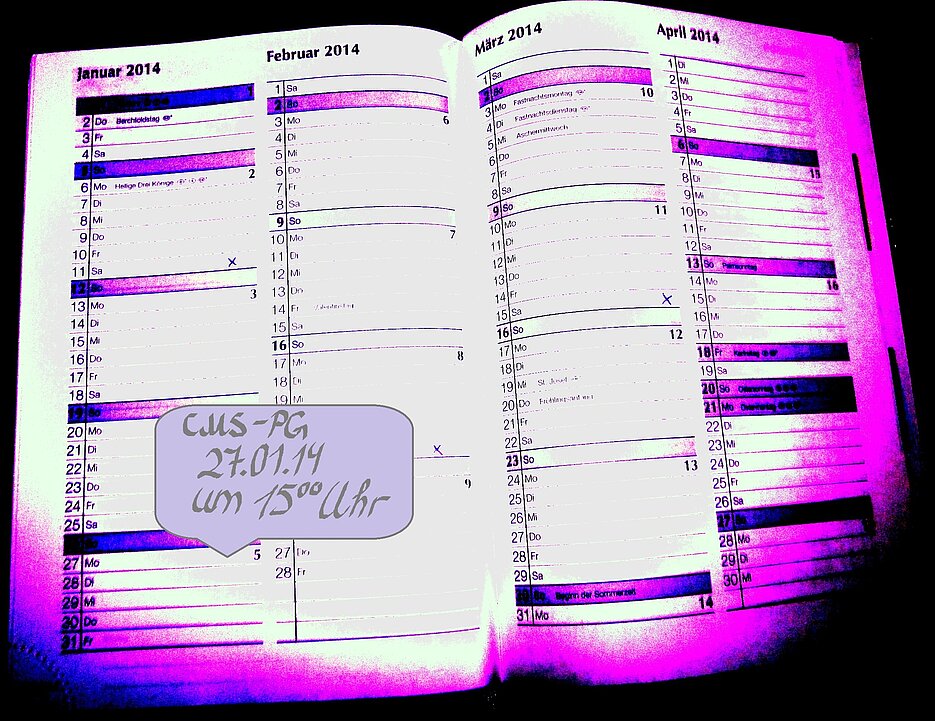 Januar 2014
1
2 Do Berchtoldstag
3 Fr
4 Sa
5 So
6 Mo Heilige Drei Könige 2
7 Di
8 Mi
9 Do
10 Fr
11 Sa
12 So
13 Mo 3
14 Di
15 Mi
16 Do
17 Fr
18 Sa
19 So
20 Mo
21 Di
22 Mi
23 Do
24 Fr
25 Sa
27 Mo 5
28 Di
29 Mi
30 Do
31 Fr
CMS-PG
27.01.14
um 15⁰⁰ Uhr
Februar 2014
1 Sa
2 So
3 Mo 6
4 Di
5 Mi
6 Do
7 Fr
8 Sa
9 So
10 Mo 7
11 Di
12 Mi
13 Do
14 Fr Valentinstag
15 Sa
16 So
17 Mo 8
18 Di
19 Mi
9
27 Do
28 Fr
März 2014
1 Sa
2 So
3 Mo Fastnachtsmontag 10
4 Di Fastnachtsdienstag
5 Mi Aschermittwoch
6 Do
7 Fr
8 Sa
9 So
10 Mo 11
11 Di
12 Mi
13 Do
14 Fr
15 Sa
16 So
17 Mo 12
18 Di
19 Mi St. Josef
20 Do Frühlingsanfang
21 Fr
22 Sa
23 So
24 Mo 13
25 Di
26 Mi
27 Do
28 Fr
29 Sa
30 So Beginn der Sommerzeit
31 Mo 14
April 2014
1 Di
2 Mi
3 Do
4 Fr
5 Sa
6 So
7 Mo 15
8 Di
9 Mi
10 Do
11 Fr
12 Sa
13 So Palmsonntag
14 Mo 16
15 Di
16 Mi
17 Do
18 Fr Karfreitag
19 Sa
20 So Ostersonntag
21 Mo Ostermontag
22 Di
23 Mi
24 Do
25 Fr
26 Sa
27 So
28 Mo
29 Di
30 Mi